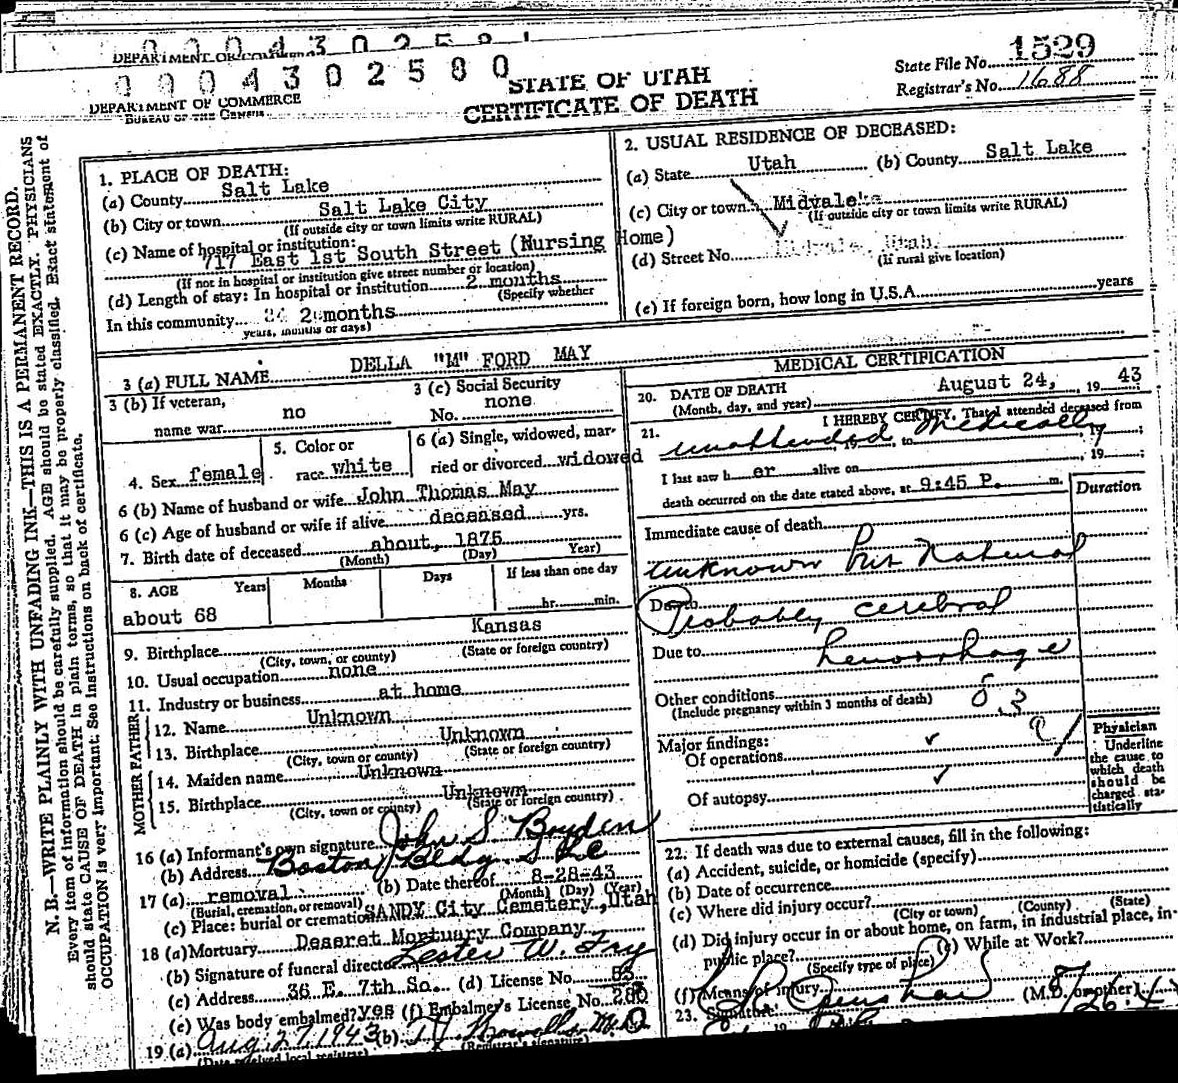 0 0 0 4 3 0 2 5 8 1
DEPARTMENT OF COMMERCE
0 0 0 4 3 0 2 5 8 0
DEPARTMENT OF COMMERCE
BUREAU OF THE CENSUS
STATE OF UTAH
CERTIFICATE OF DEATH
State File No. 1529
Registrar's No. 1688
N. B.—WRITE PLAINLY WITH UNFADING INK—THIS IS A PERMANENT RECORD.
Every item of information should be carefully supplied. AGE should be stated EXACTLY. PHYSICIANS
should state CAUSE OF DEATH in plain terms, so that it may be properly classified. Exact statement of
OCCUPATION is very important. See instructions on back of certificate.
1. PLACE OF DEATH:
(a) County Salt Lake
(b) City or town Salt Lake City
(If outside city or town limits write RURAL)
(c) Name of hospital or institution:
717 East 1st South Street (Nursing Home)
(If not in hospital or institution give street number or location)
(d) Length of stay: In hospital or institution 2 months
(Specify whether
In this community 2 months
years, months or days)
2. USUAL RESIDENCE OF DECEASED:
(a) State Utah (b) County Salt Lake
(c) City or town Midvale
(If outside city or town limits write RURAL)
(d) Street No. Midvale, Utah.
(If rural give location)
(e) If foreign born, how long in U.S.A. years
3 (a) FULL NAME DELLA "M" FORD MAY
3 (b) If veteran,
name war no
3 (c) Social Security
No. none
4. Sex female
5. Color or
race white
6 (a) Single, widowed, mar-
ried or divorced widowed
6 (b) Name of husband or wife John Thomas May
6 (c) Age of husband or wife if alive deceased yrs.
7. Birth date of deceased about, 1875
(Month) (Day) Year)
8. AGE Years Months Days If less than one day
about 68 hr. min.
9. Birthplace Kansas
(City, town, or county) (State or foreign country)
10. Usual occupation none
11. Industry or business at home
FATHER
12. Name Unknown
13. Birthplace Unknown
(City, town or county) (State or foreign country)
MOTHER
14. Maiden name Unknown
15. Birthplace Unknown
(City, town or county) (State or foreign country)
16 (a) Informant's own signature John S Boyden
(b) Address Boston Bldg. SLC
17 (a) removal (b) Date thereof 8-28-43
(Burial, cremation, or removal) (Month) (Day) (Year)
(c) Place: burial or cremation SANDY City Cemetery, Utah
18 (a) Mortuary Deseret Mortuary Company
(b) Signature of funeral director Lester W. Fry
(c) Address 36 E. 7th So. (d) License No. 83
(e) Was body embalmed? yes (f) Embalmer's License No. 280
19 (a) Aug. 27, 1943 (b) M.D.
(Date received local registrar) (Registrar's signature)
MEDICAL CERTIFICATION
20. DATE OF DEATH August 24, 19 43
(Month, day, and year)
21. I HEREBY CERTIFY, That I attended deceased from
unattended to Medically, 19
I last saw h er alive on , 19 ;
death occurred on the date stated above, at 9:45 P. m.
Duration
Immediate cause of death
unknown but natural
Due to Probably cerebral
Due to hemorrhage
Other conditions
(Include pregnancy within 3 months of death)
Major findings:
Of operations ✓
Of autopsy ✓
Physician
Underline
the cause to
which death
should be
charged sta-
tistically
22. If death was due to external causes, fill in the following:
(a) Accident, suicide, or homicide (specify)
(b) Date of occurrence
(c) Where did injury occur?
(City or town) (County) (State)
(d) Did injury occur in or about home, on farm, in industrial place, in-
public place? (e) While at Work?
(Specify type of place)
(f) Means of injury
23. Signature (M.D. or other) 8/26